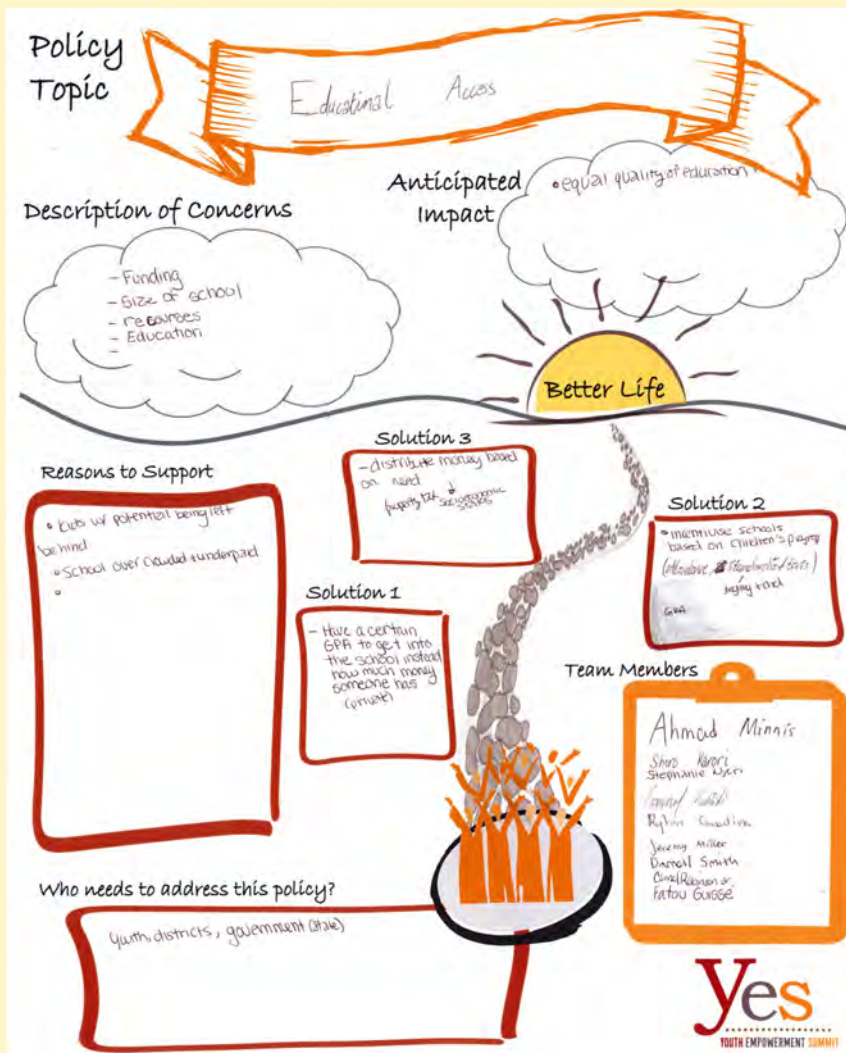 Policy
Topic
Educational Access
Anticipated
Impact
• equal quality of education
Description of Concerns
- Funding
- Size of school
- recourses
- Education
-
Better Life
Solution 3
- distribute money based
on need
property tax socioeconomic
status
Reasons to Support
• kids w/ potential being left
behind
• School over crowded + underpaid
•
Solution 2
• incentivise schools
based on children's
(attendance, standardized tests)
GPA
Solution 1
- Have a certain
GPA to get into
the school instead
how much money
someone has
(private)
Team Members
Ahmad Minnis
Shiro Karori
Stephanie Njeri
Jeremy Miller
Darnell Smith
Fatou Guisse
Who needs to address this policy?
youth, districts, government (state)
yes
YOUTH EMPOWERMENT SUMMIT